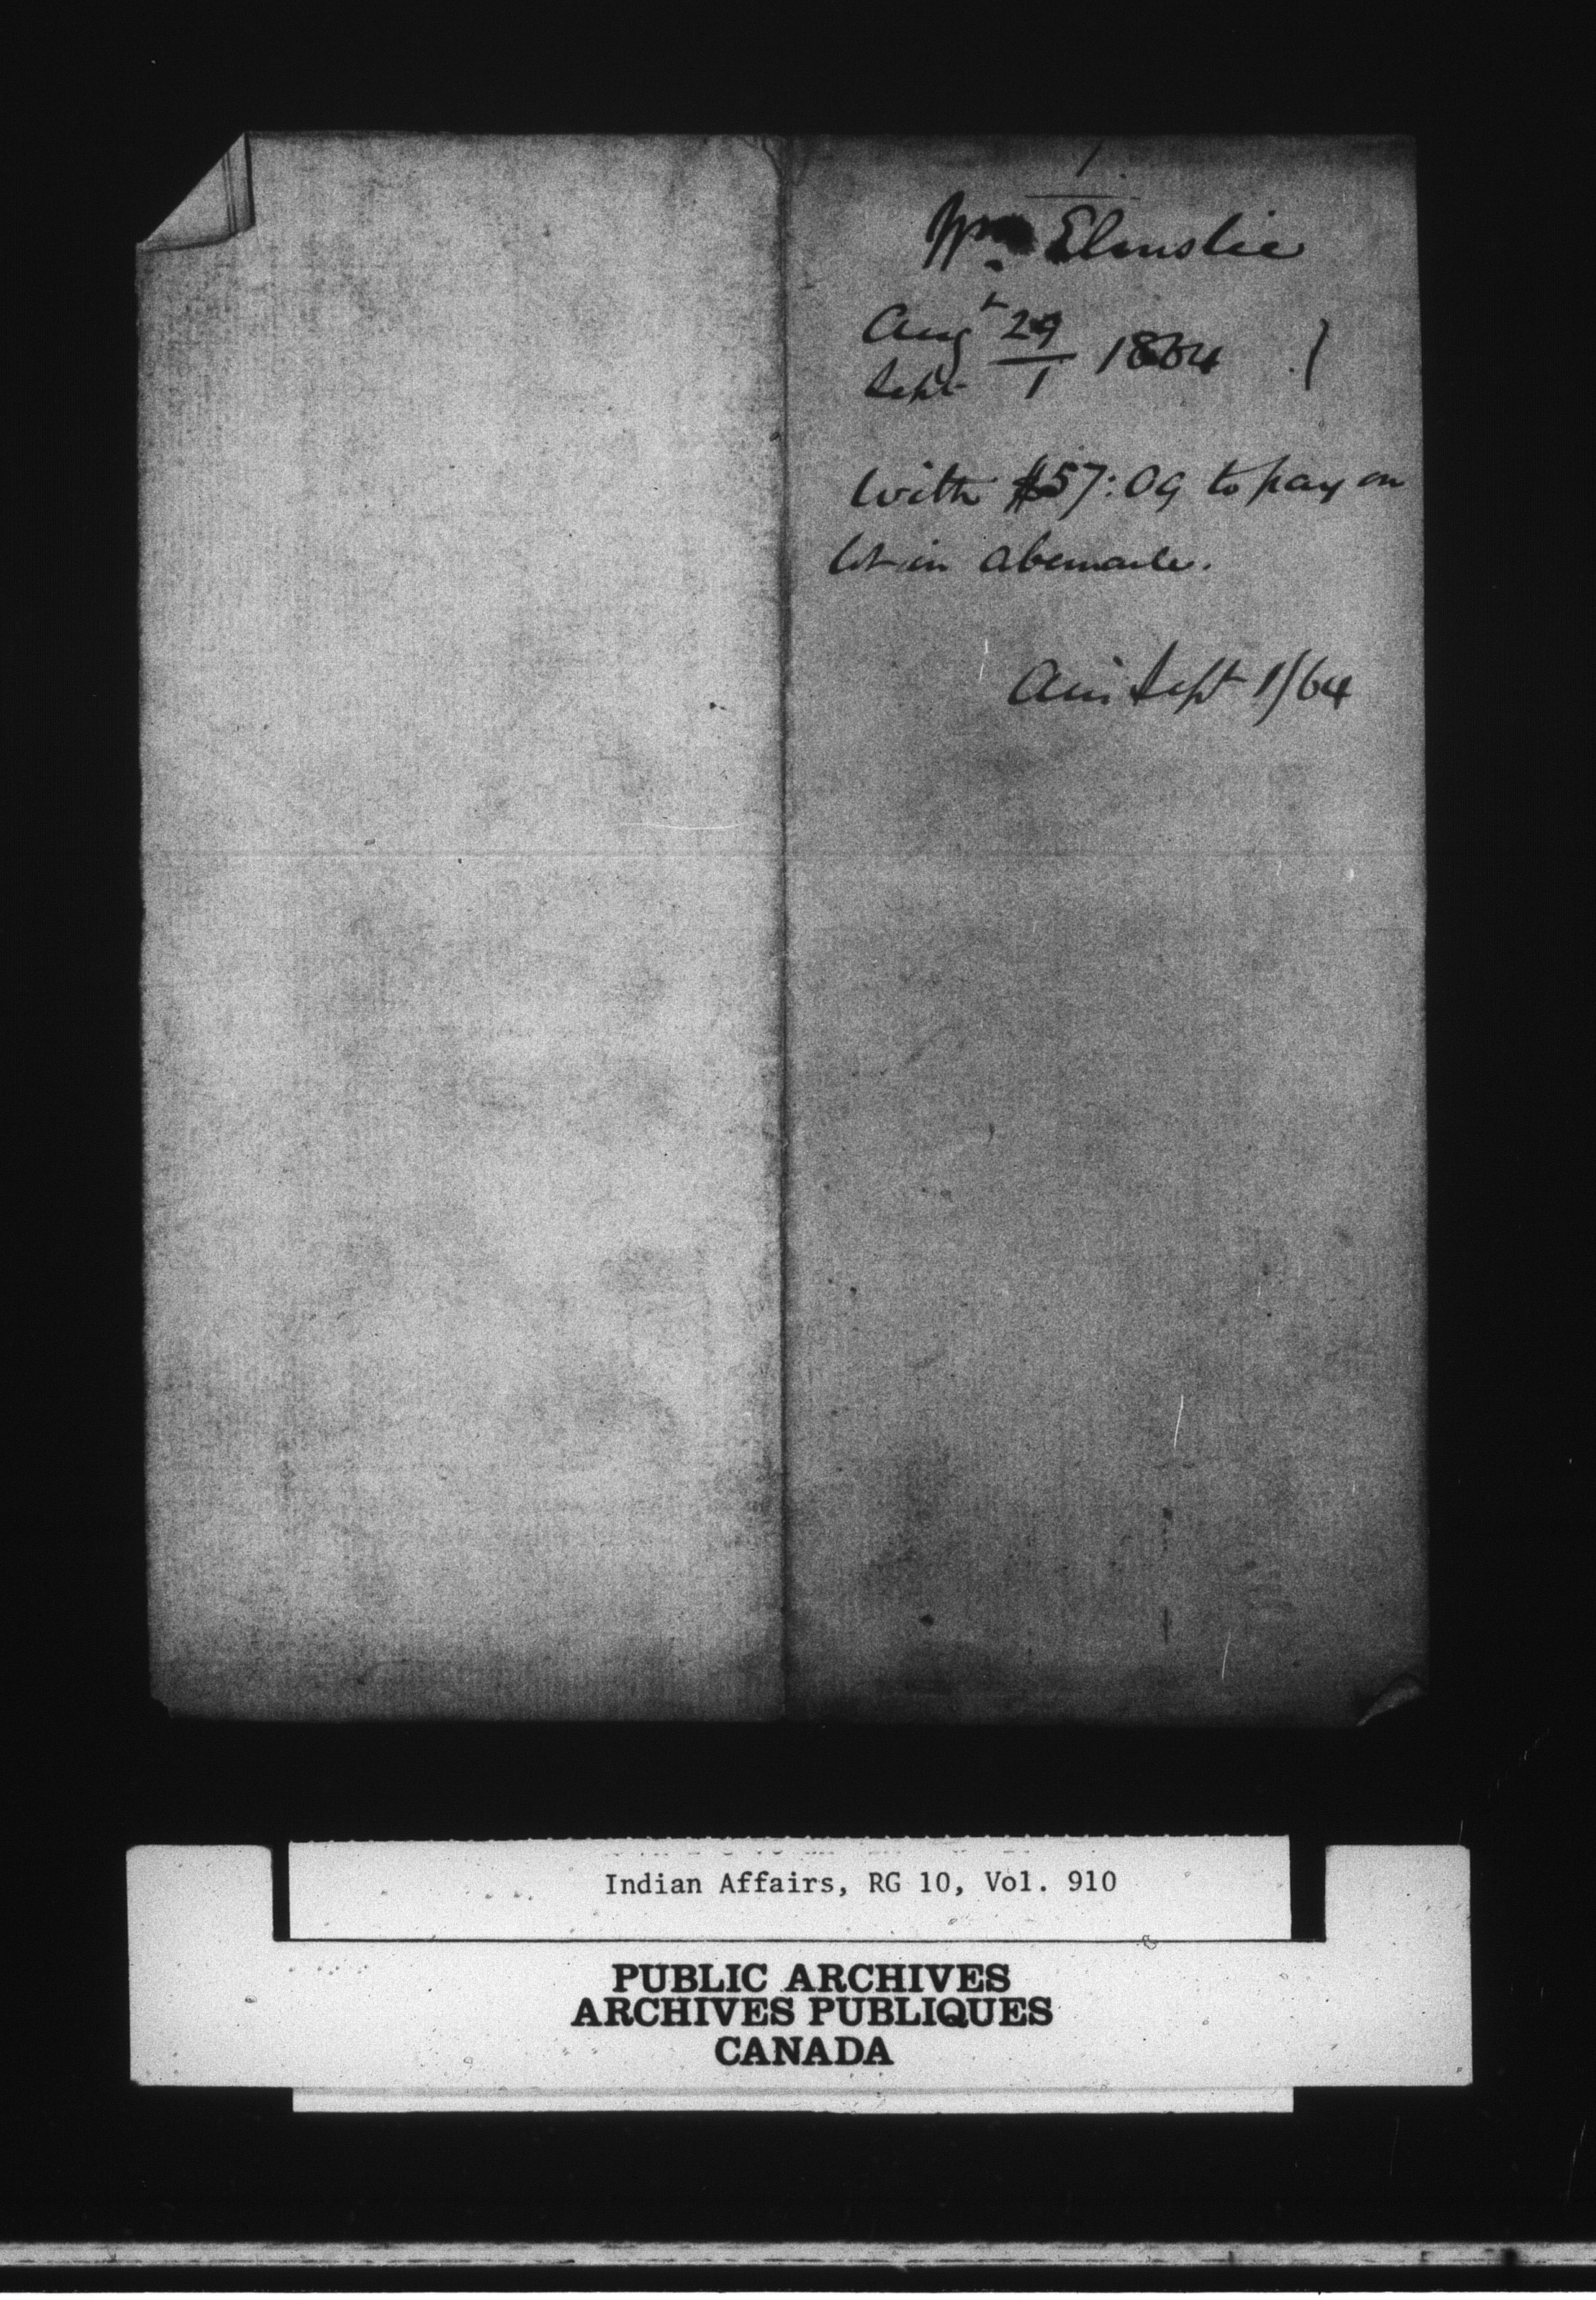 1
Wm Elmslie
Augt 29
Sept 1 1864
With $57:09 to pay on
lot in abemarle.
Sept 1/64
Indian Affairs, RG 10, Vol. 910
PUBLIC ARCHIVES
ARCHIVES PUBLIQUES
CANADA